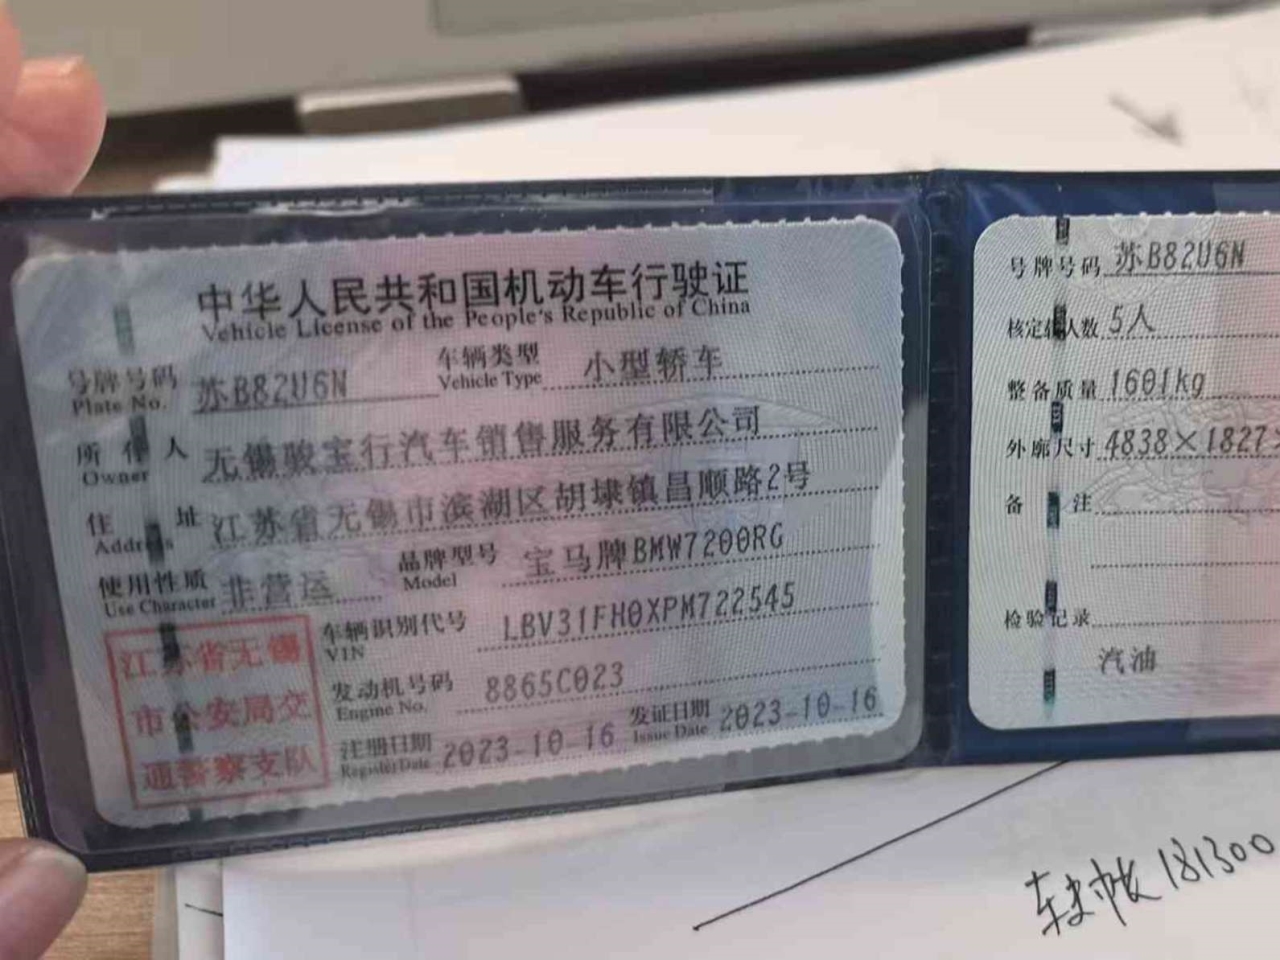 中华人民共和国机动车行驶证
Vehicle License of the People's Republic of China
号牌号码 苏B82U6N 车辆类型 小型轿车
Plate No. Vehicle Type
所有人 无锡骏宝行汽车销售服务有限公司
Owner
住址 江苏省无锡市滨湖区胡埭镇昌顺路2号
Address
使用性质 非营运 品牌型号 宝马牌BMW7200RG
Use Character Model
车辆识别代号 LBV31FH0XPM722545
VIN
发动机号码 8865C023
Engine No.
注册日期 2023-10-16 发证日期 2023-10-16
Register Date Issue Date
江苏省无锡
市公安局交
通警察支队
号牌号码 苏B82U6N
核定载人数 5人
整备质量 1601kg
外廓尺寸 4838×1827×
备注
检验记录
汽油
181300